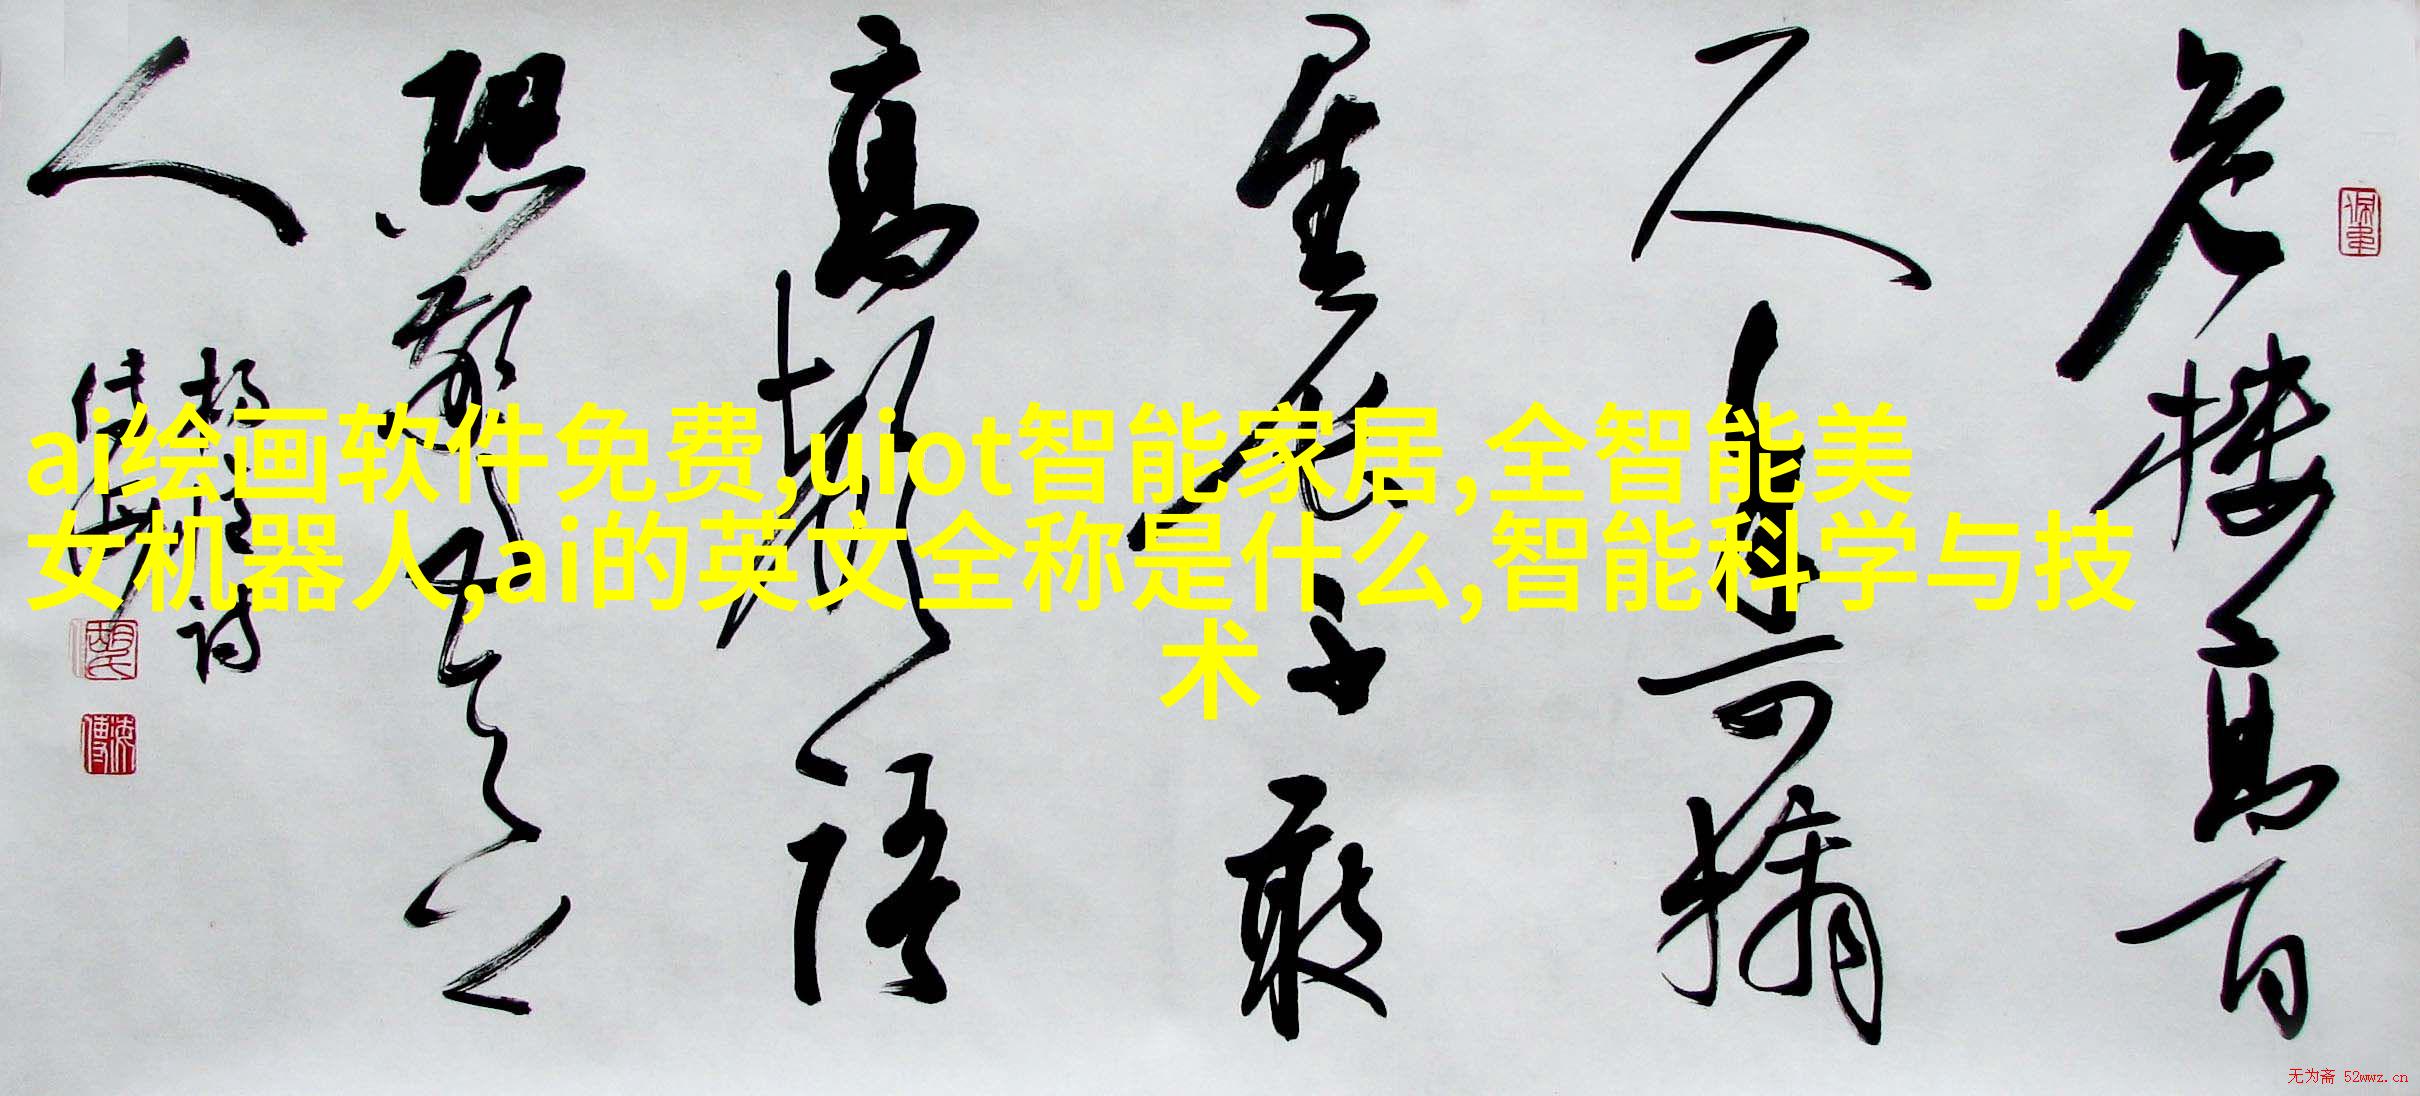 危楼高百
尺手可摘
星辰不敢
高聲語
恐驚天上
人
ai绘画软件免费,uiot智能家居,全智能美
女机器人,ai的英文全称是什么,智能科学与技
术
无为斋 52wwz.cn